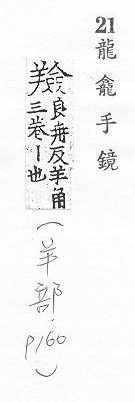 21 龍龕手鏡
羷
良冉反羊角
三卷丨也
(羊部.p160)